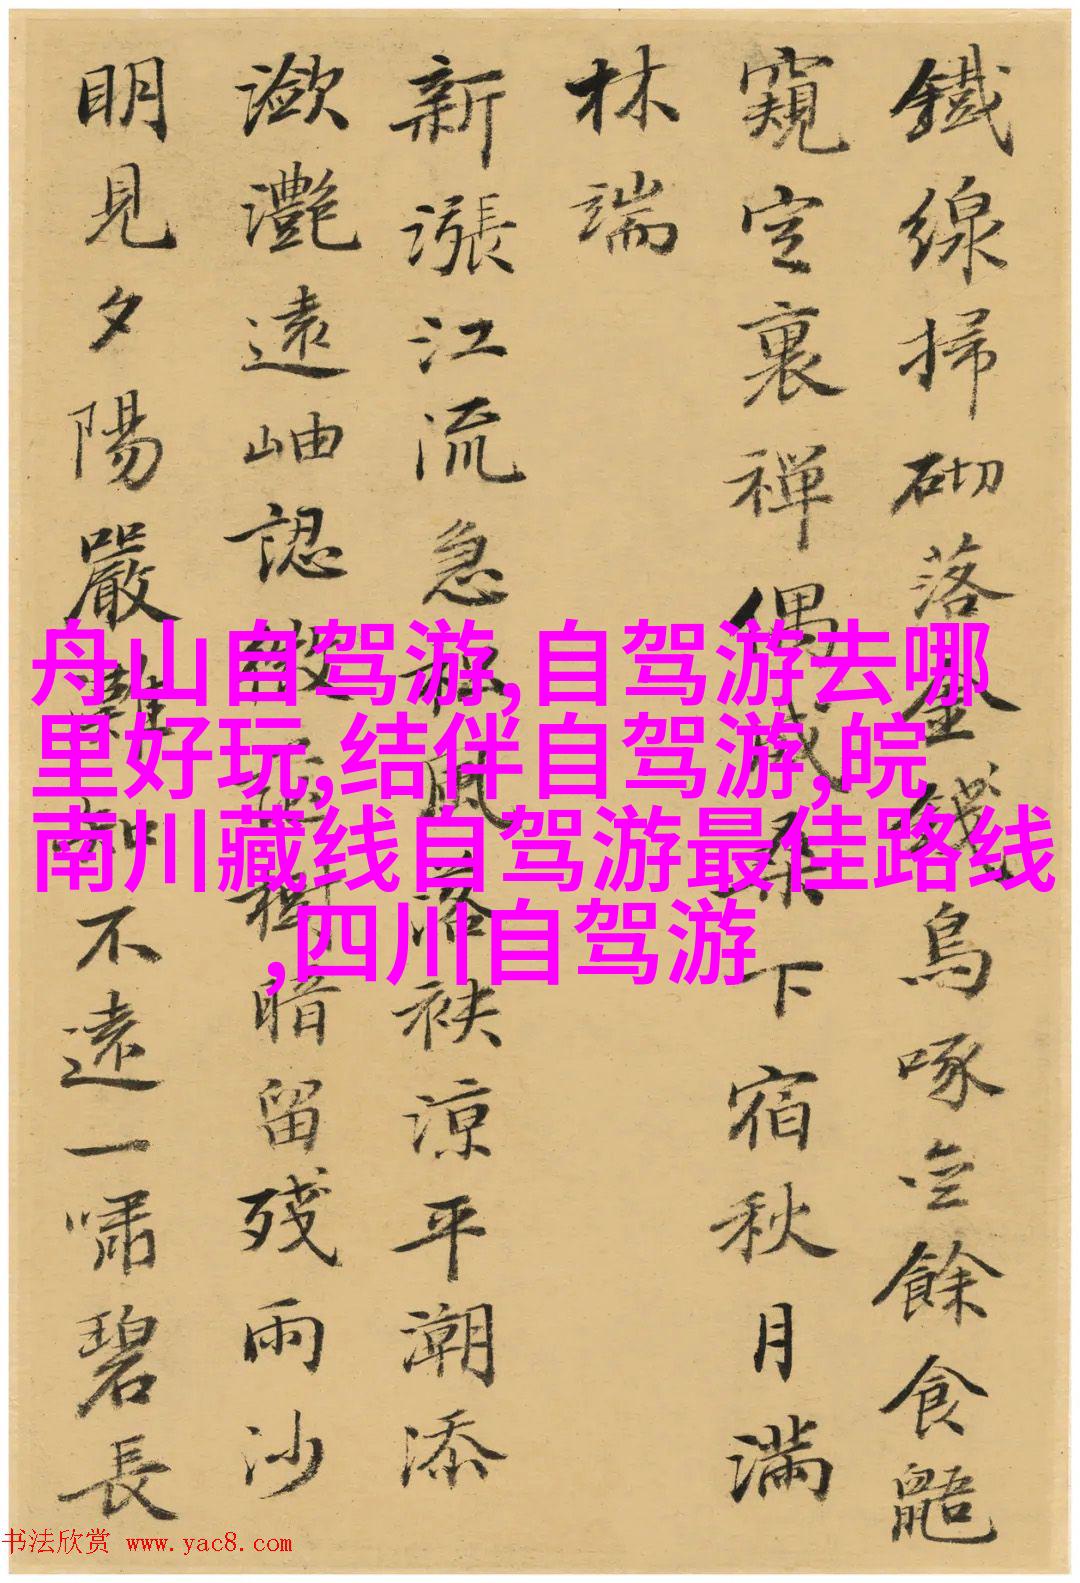 鐵線掃砌落金錢烏啄無餘食鼯
窺定裏禪偶成桑下宿秋月滿
林端
新漲江流急風落袂涼平潮添
瀲灩遠岫認微茫樹暗留殘雨沙
明見夕陽嚴知不遠一嘯碧長
舟山自驾游,自驾游去哪
里好玩,结伴自驾游,皖
南川藏线自驾游最佳路线
,四川自驾游
书法欣赏 www.yac8.com